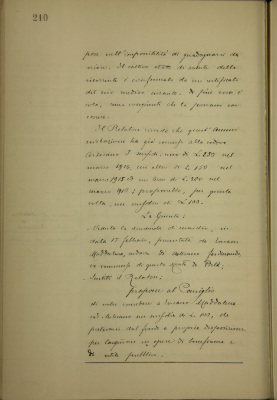 210
pone nell'impossibilità di guadagnarsi da
vivere. Il cattivo stato di salute della
ricorrente è confermato da un certificato
del suo medico curante. Di più essa è
sola, senza congiunti che la possano soc-
correre.
Il Relatore ricorda che quest'Ammi-
nistrazione ha già concesso alla vedova
Artesano 3 sussidi: uno di L. nel
marzo un altro di L. nel
marzo 1915 ed un terzo di L. nel
marzo propone, per questa
volta, un sussidio di L.
La Giunta:
Veduta la domanda di sussidio, in
data febbraio, presentata da
Maddalena, vedova di Artesano Ferdinando,
Sentito il Relatore;
propone al Consiglio
di voler concedere a Maddalena
ved. Artesano un sussidio di L. da
prelevarsi dal fondo a propria disposizione
per largizioni in opere di beneficenza e
di utilità pubblica.